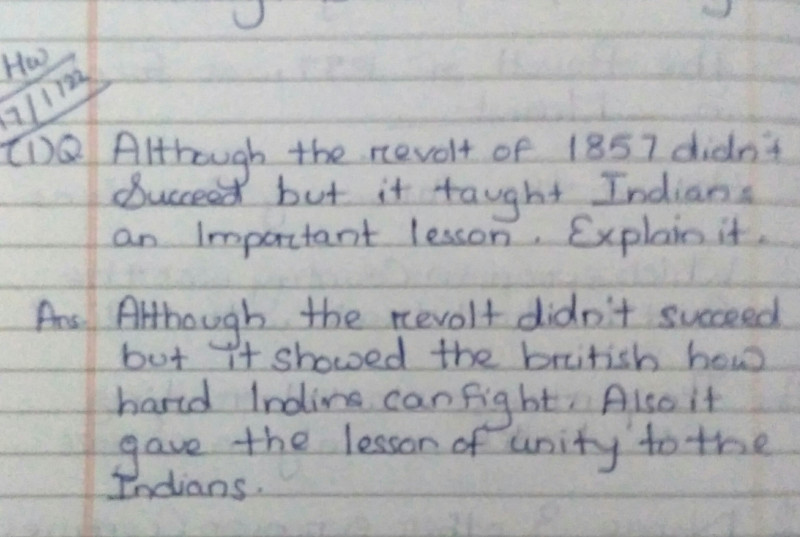 HW
17/1/22
(1)Q Although the revolt of 1857 didn't
Succeed but it taught Indians
an Important lesson. Explain it.
Ans Although the revolt didn't succeed
but it showed the british how
hard Indins can fight. Also it
gave the lesson of unity to the
Indians.